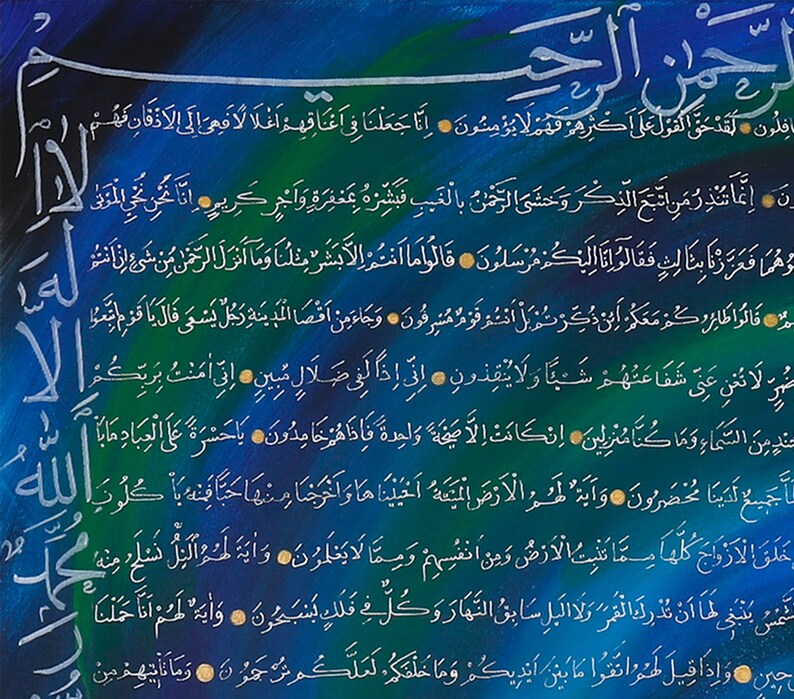 الرَّحْمٰنِ الرَّحِيمِ
لَقَدْ حَقَّ الْقَوْلُ عَلَى أَكْثَرِهِمْ فَهُمْ لَا يُؤْمِنُونَ ۝ اِنَّا جَعَلْنَا فِى اَعْنَاقِهِمْ اَغْلَالًا فَهِىَ اِلَى الْاَذْقَانِ فَهُمْ
اِنَّمَا تُنْذِرُ مَنِ اتَّبَعَ الذِّكْرَ وَخَشِىَ الرَّحْمٰنَ بِالْغَيْبِ فَبَشِّرْهُ بِمَغْفِرَةٍ وَاَجْرٍ كَرِيمٍ ۝ اِنَّا نَحْنُ نُحْيِ الْمَوْتٰى
فَعَزَّزْنَا بِثَالِثٍ فَقَالُوا اِنَّا اِلَيْكُمْ مُرْسَلُونَ ۝ قَالُوا مَا اَنْتُمْ اِلَّا بَشَرٌ مِثْلُنَا وَمَا اَنْزَلَ الرَّحْمٰنُ مِنْ شَىْءٍ اِنْ اَنْتُمْ
قَالُوا طَائِرُكُمْ مَعَكُمْ اَئِنْ ذُكِّرْتُمْ بَلْ اَنْتُمْ قَوْمٌ مُسْرِفُونَ ۝ وَجَاءَ مِنْ اَقْصَا الْمَدِينَةِ رَجُلٌ يَسْعٰى قَالَ يَا قَوْمِ اتَّبِعُوا
لَا تُغْنِ عَنِّى شَفَاعَتُهُمْ شَيْئًا وَلَا يُنْقِذُونِ ۝ اِنِّى اِذًا لَفِى ضَلَالٍ مُبِينٍ ۝ اِنِّى اٰمَنْتُ بِرَبِّكُمْ
مِنَ السَّمَاءِ وَمَا كُنَّا مُنْزِلِينَ ۝ اِنْ كَانَتْ اِلَّا صَيْحَةً وَاحِدَةً فَاِذَا هُمْ خَامِدُونَ ۝ يَا حَسْرَةً عَلَى الْعِبَادِ مَا يَأْ
جَمِيعٌ لَدَيْنَا مُحْضَرُونَ ۝ وَاٰيَةٌ لَهُمُ الْاَرْضُ الْمَيْتَةُ اَحْيَيْنَاهَا وَاَخْرَجْنَا مِنْهَا حَبًّا فَمِنْهُ يَأْكُلُونَ
خَلَقَ الْاَزْوَاجَ كُلَّهَا مِمَّا تُنْبِتُ الْاَرْضُ وَمِنْ اَنْفُسِهِمْ وَمِمَّا لَا يَعْلَمُونَ ۝ وَاٰيَةٌ لَهُمُ الَّيْلُ نَسْلَخُ مِنْهُ
الشَّمْسُ يَنْبَغِى لَهَا اَنْ تُدْرِكَ الْقَمَرَ وَلَا الَّيْلُ سَابِقُ النَّهَارِ وَكُلٌّ فِى فَلَكٍ يَسْبَحُونَ ۝ وَاٰيَةٌ لَهُمْ اَنَّا حَمَلْنَا
۝ وَاِذَا قِيلَ لَهُمُ اتَّقُوا مَا بَيْنَ اَيْدِيكُمْ وَمَا خَلْفَكُمْ لَعَلَّكُمْ تُرْحَمُونَ ۝ وَمَا تَأْتِيهِمْ مِنْ
لَا اِلٰهَ اِلَّا اللّٰهُ مُحَمَّدٌ